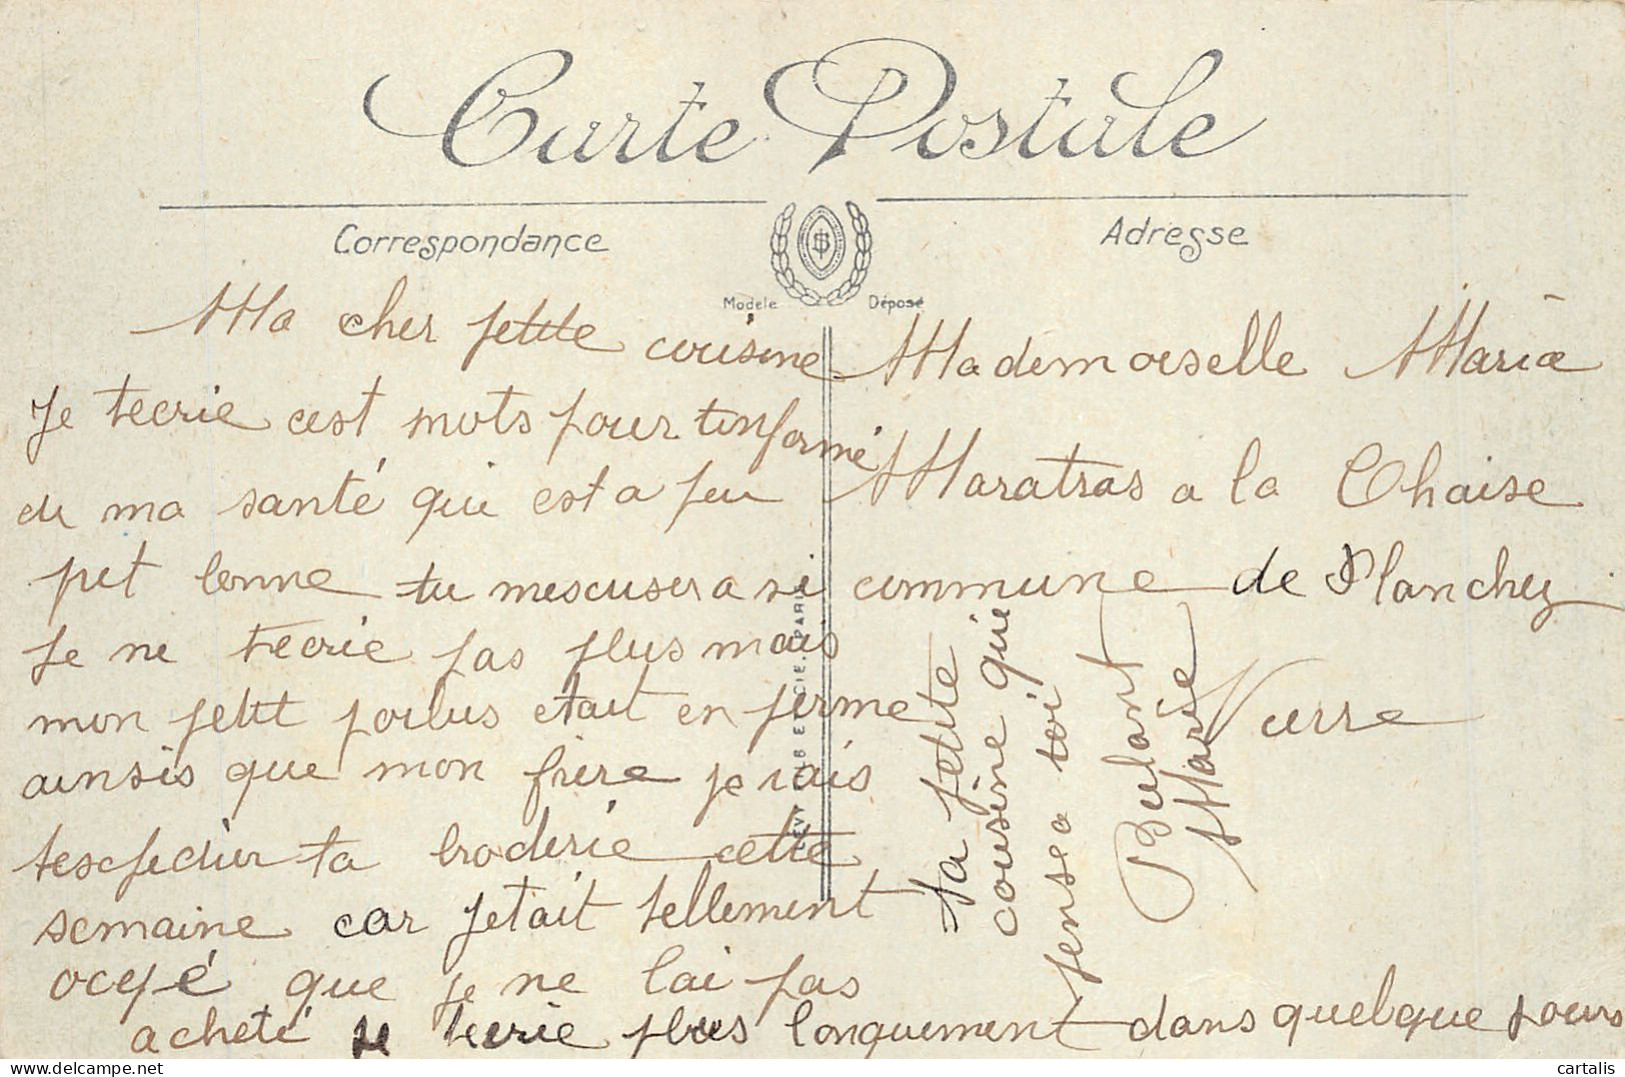 Carte Postale
Correspondance
Adresse
Modele Déposé
Ma cher petite cousine
Je tecrie cest mots pour tinformé
de ma santé qui est a peu
pret bonne tu mescusera si
je ne tecrie pas plus mais
mon petit poilus etait en perme
ainsis que mon frère je vais
tespedier ta broderie cette
semaine car jetait tellement
ocypé que je ne lai pas
acheté je tecrie plus longuement dans quelque jours
Mademoiselle Maria
Maratras a la Chaise
commune de Planchez
Nievre
ta petite
cousine qui
pense a toi
Bulant
Marie
LEVY FILS ET CIE. PARIS
cartalis
www.delcampe.net